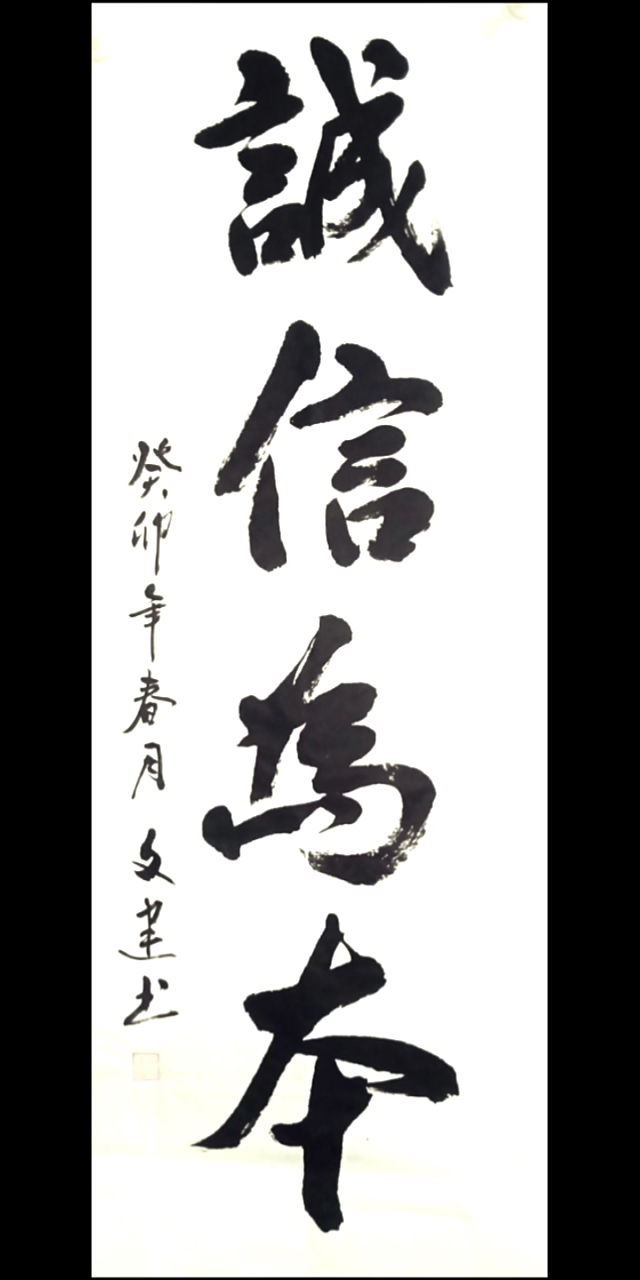 誠信為本
癸卯年春月文建书